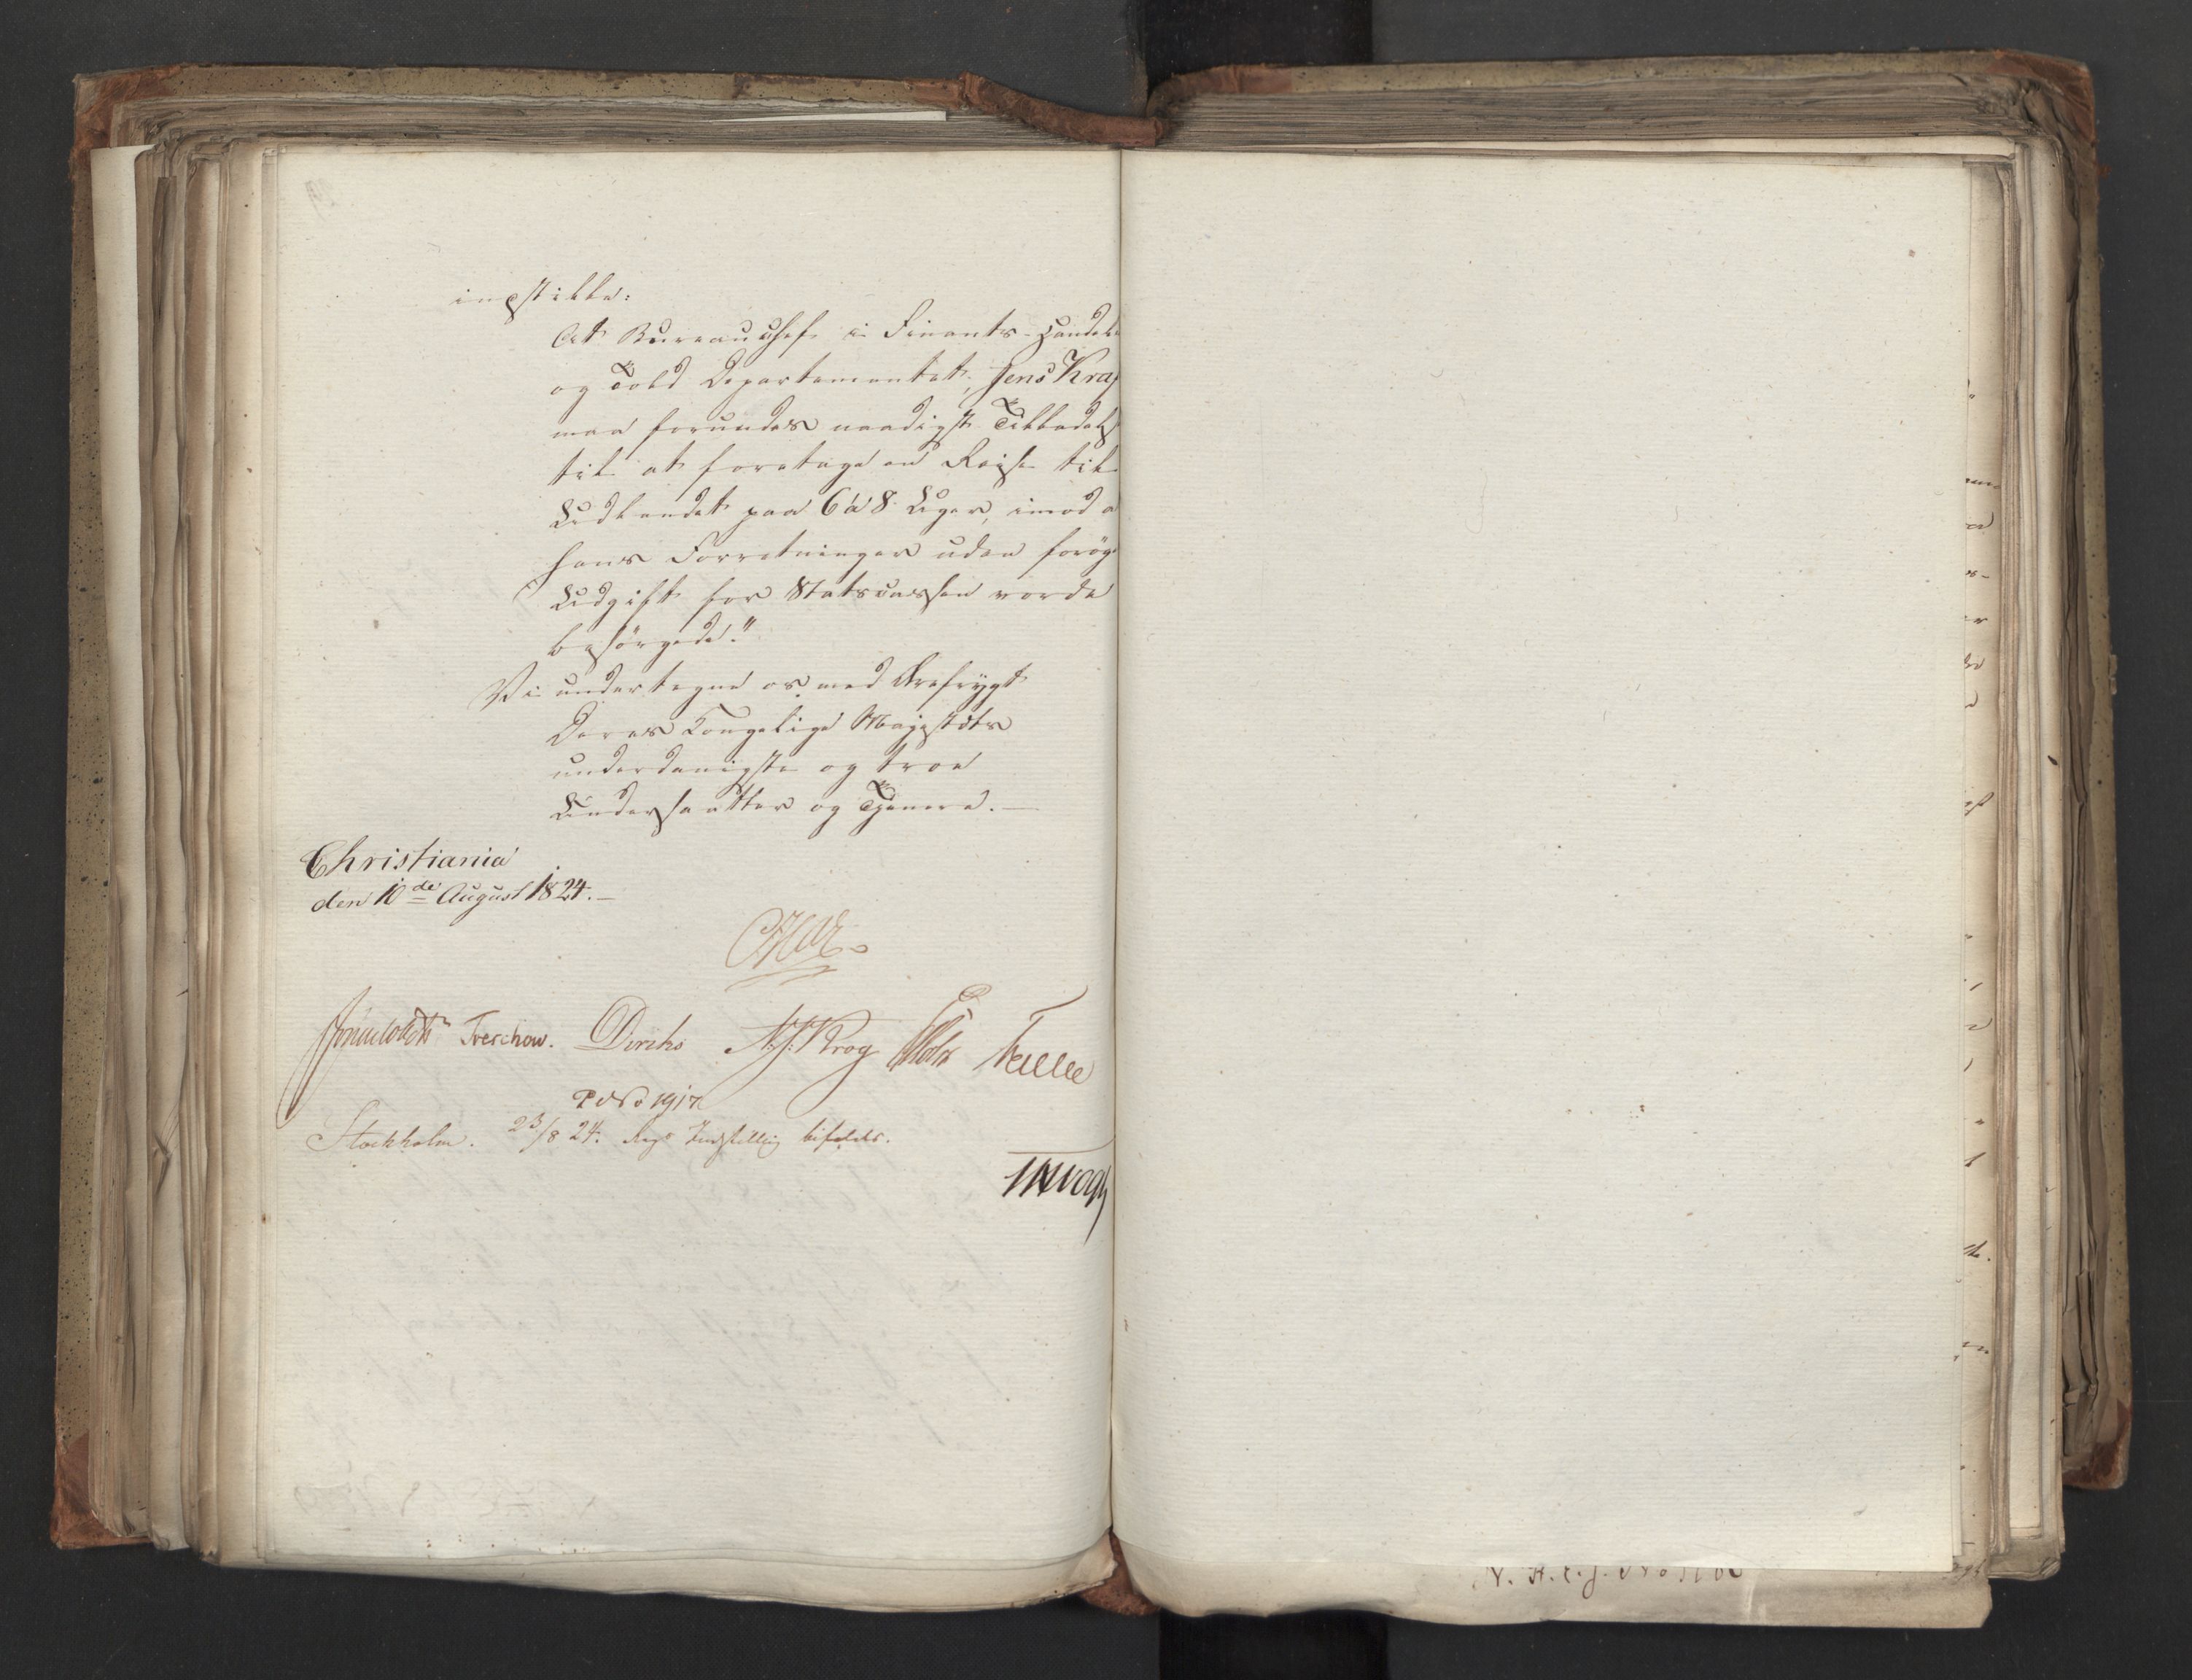 indstille:
At Bureauchef i Finants- Handels
og Told Departementet, Jens Kraf
maa forundes naadigst Tilladelse
til at foretage en Reise til
Udlandet paa 6 à 8 Uger, imod a
hans Forretninger uden forøg
Udgift for Statscassen vorde
besörgede."
Vi undertegne os med Ærefrygt
Deres Kongelige Majestæts
underdanigste og troe
Undersaatter og Tjenere. —
Christiania
den 10de August 1824. —
Sommerhielm Treschow. Diriks A. J. Krog Holst Fasting
No 1917
Stockholm. 23/8 24. Regs Indstilling bifaldes.